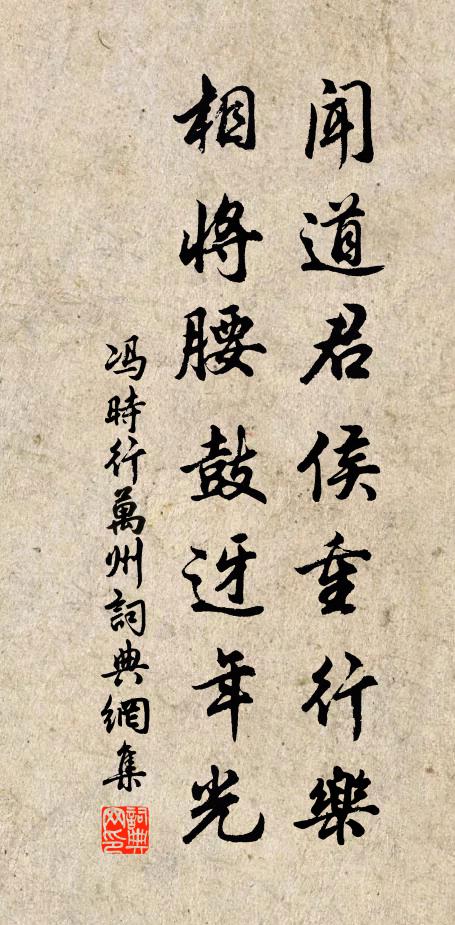 闻道君侯重行樂
相将腰鼓迓年光
冯時行萬州詞典網集
詞典網印